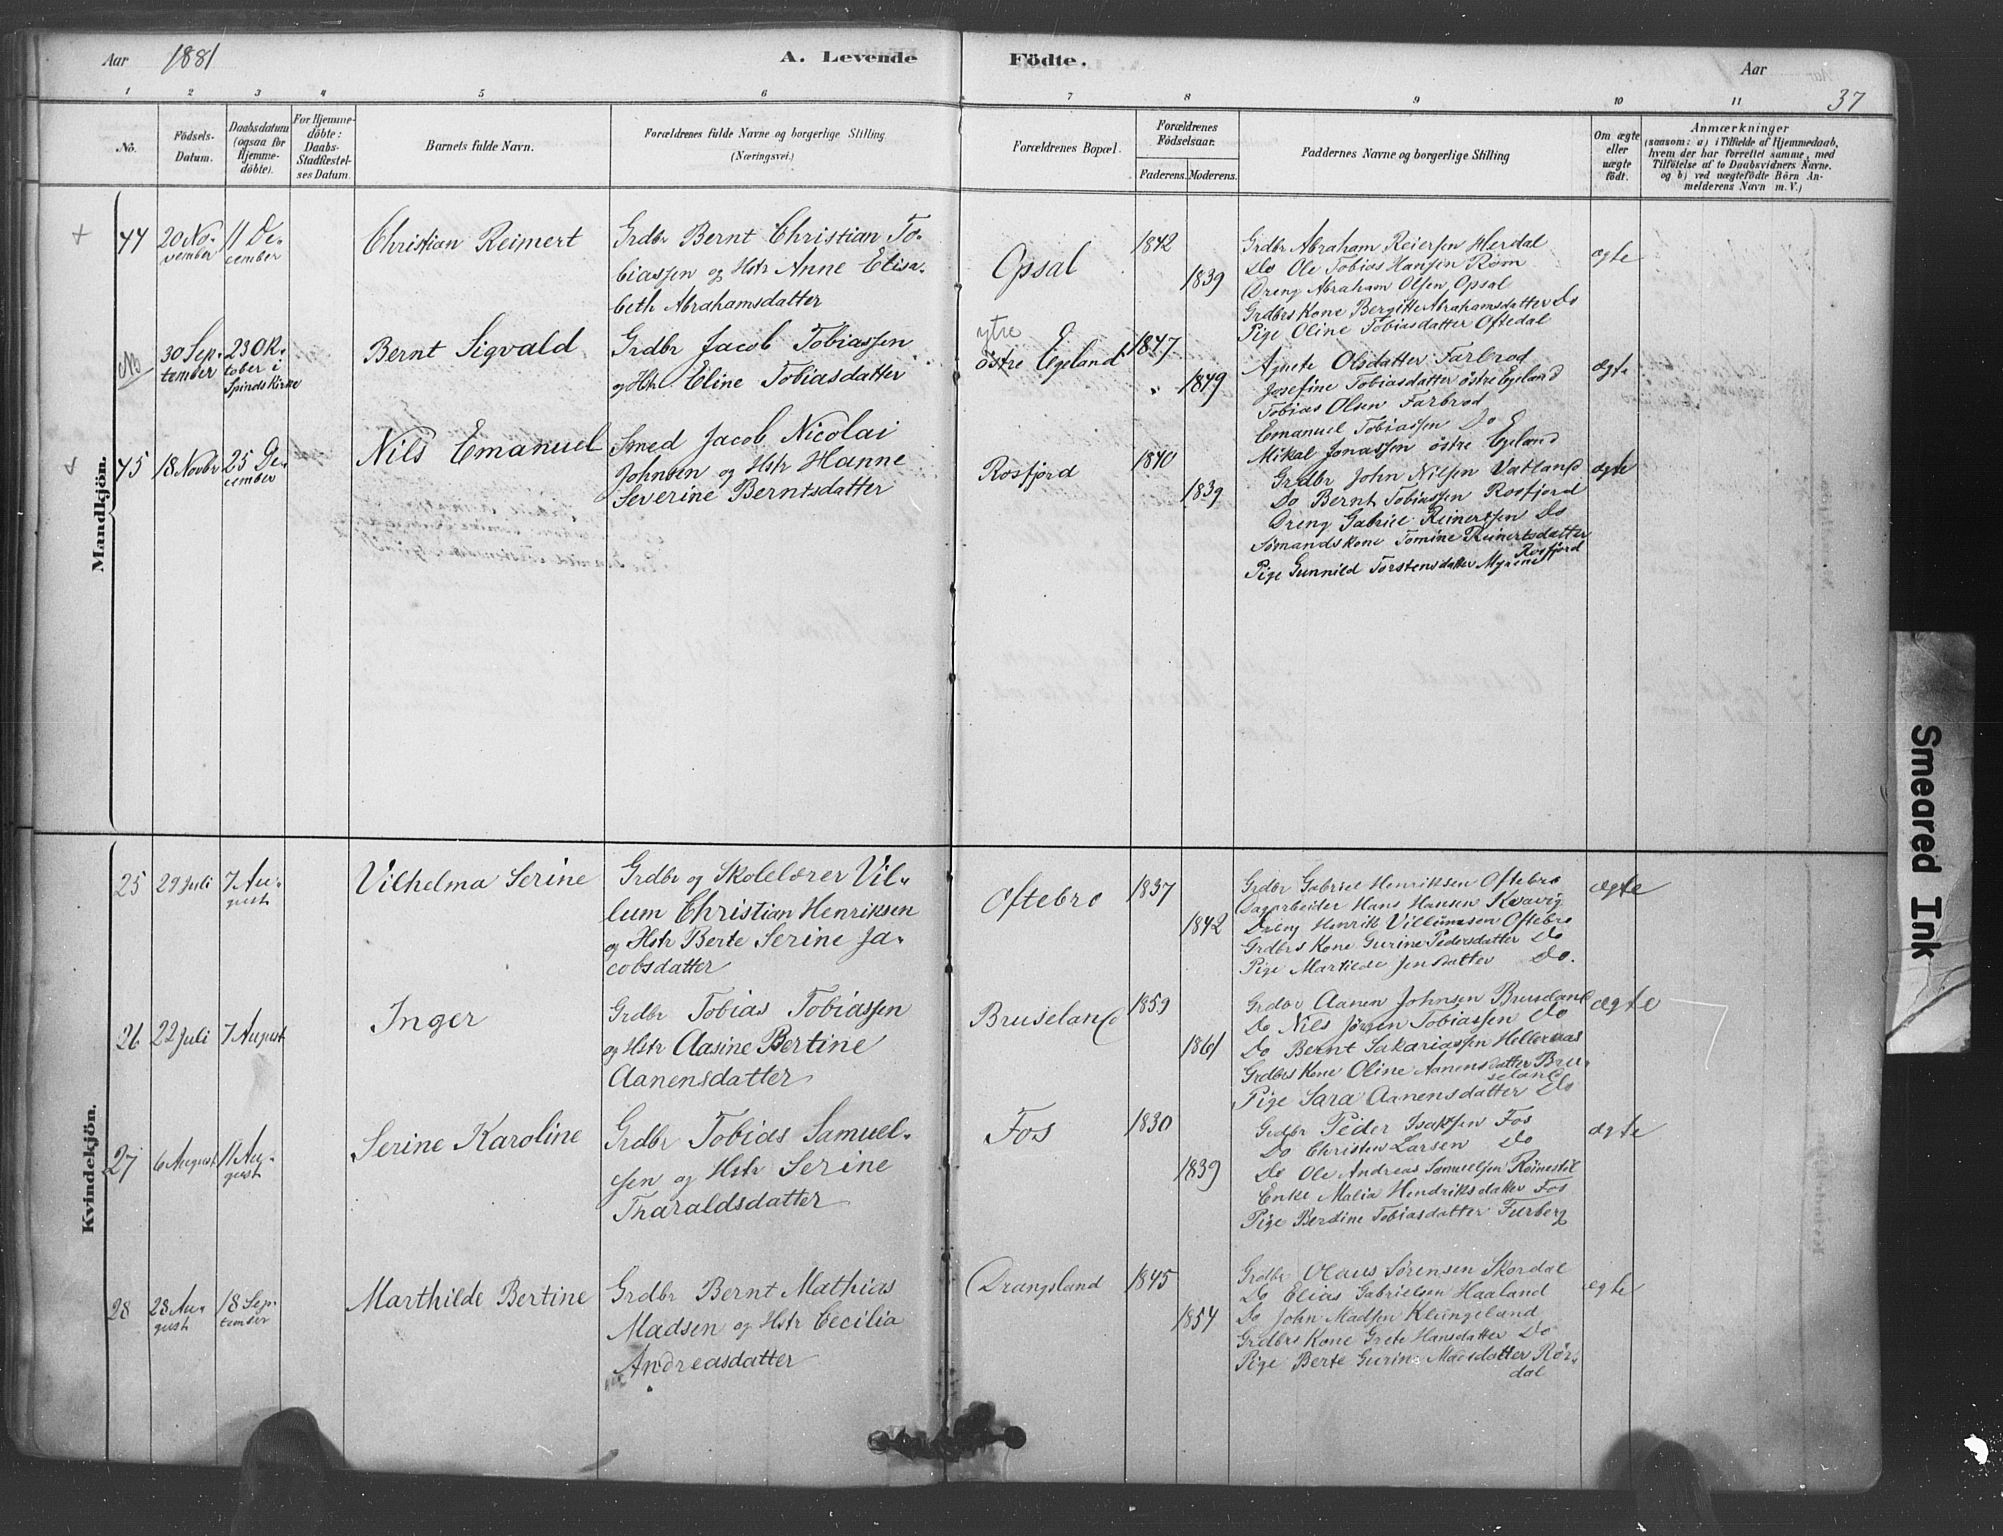 Aar 1881
A. Levende Födte.
Aar
37
1 2 3 4 5 6 7 8 9 10 11
No.
Födsels-
Datum.
Daabsdatum
(ogsaa for
Hjemme-
döbte).
For Hjemme-
döbte:
Daabs-
Stadfæstel-
ses Datum
Barnets fulde Navn.
Forældrenes fulde Navne og borgerlige Stilling
(Næringsvei.)
Forældrenes Bopæl.
Forældrenes
Födselsaar.
Faderens. Moderens.
Faddernes Navne og borgerlige Stilling
Om ægte
eller
uægte
födt.
Anmærkninger
(saasom: a) i Tilfælde af Hjemmedaab,
hvem der har forrettet samme, med
Tilföielse af to Daabsvidners Navne.
og b) ved uægtefödte Börn An-
melderens Navn m. V.)
Mandkjön.
+
44
20 No-
vember
11 De-
cember
Christian Reimert
Grdbr Bernt Christian To-
biassen og Hstr Anne Elisa-
beth Abrahamsdatter
Opsal
1842
1839
Grdbr Abraham Reiersen Herdal
Do Ole Tobias Hansen Röm
Dreng Abraham Olsen Opsal
Grdbrs Kone Bergitte Abrahamsdatter Do
Pige Oline Tobiasdatter Oftedal
ægte
NB
30 Sep-
tember
23 Ok-
tober i
Spinds Kirke
Bernt Sigvald
Grdbr Jacob Tobiassen
og Hstr Eline Tobiasdatter
ytre
östre Egeland
1847
1849
Agnete Olsdatter Farbrod
Josefine Tobiasdatter östre Egeland
Tobias Olsen Farbrod
Emanuel Tobiassen Do E
Mikal Jonassen östre Egeland
ægte
+
45
18 Novbr
25 De-
cember
Nils Emanuel
Smed Jacob Nicolai
Johnsen og Hstr Hanne
Severine Berntsdatter
Rosfjord
1840
1839
Grdbr John Nilsen Vatland
Do Bernt Tobiassen Rosfjord
Dreng Gabriel Reinertsen Do
Sömandskone Tomine Reinertsdatter
Rosfjord
Pige Gunnild Torstensdatter Myrene
ægte
Kvindekjön.
25
29 Juli
7 Au-
gust
Vilhelma Serine
Grdbr og Skolelærer Vil-
lum Christian Henriksen
og Hstr Berte Serine Ja-
cobsdatter
Oftebro
1837
1842
Grdbr Gabriel Henriksen Oftebro
Dagarbeider Hans Hansen Kvavig
Dreng Henrik Villumsen Oftebro
Grdbrs Kone Gurine Pedersdatter Do
Pige Martilde Jensdatter Do.
ægte
26
22 Juli
7 August
Inger
Grdbr Tobias Tobiassen
og Hstr Aasine Bertine
Aanensdatter
Bruseland
1859
1861
Grdbr Aanen Johnsen Bruseland
Do Nils Jörgen Tobiassen Do
Do Bernt Sakariassen Hellernas
Grdbrs Kone Oline Aanensdatter Bru-
seland
Pige Sara Aanensdatter Do
ægte
27
6 August
11 Au-
gust
Serine Karoline
Grdbr Tobias Samuel-
sen og Hstr Serine
Tharaldsdatter
Fos
1830
1839
Grdbr Peder Isaksen Fos
Do Christen Larsen Do
Do Ole Andreas Samuelsen Röinestil
Enke Malia Hendriksdatter Fos
Pige Berdine Tobiasdatter Furberg
ægte
28
28 Au-
gust
18 Sep-
tember
Marthilde Bertine
Grdbr Bernt Mathias
Madsen og Hstr Cecilia
Andreasdatter
Drangsland
1845
1854
Grdbr Olaus Sörensen Skordal
Do Elias Gabrielsen Haaland
Do John Madsen Klungeland
Grdbrs Kone Grete Hansdatter Do
Pige Berte Gurine Madsdatter Rör-
dal
ægte
Smeared Ink